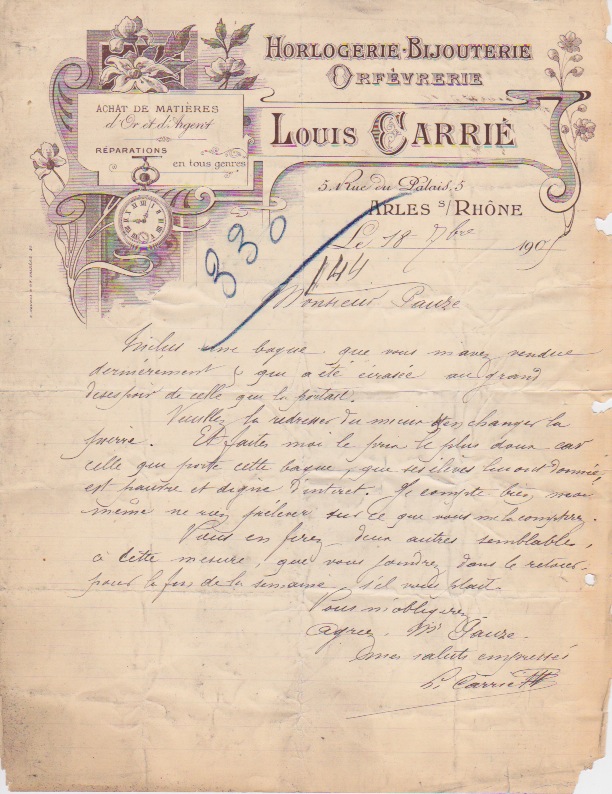 HORLOGERIE-BIJOUTERIE
ORFÈVRERIE
ACHAT DE MATIÈRES
d'Or et d'Argent
RÉPARATIONS
en tous genres
LOUIS CARRIÉ
5, Rue du Palais, 5
ARLES S/RHÔNE
Le 18 7bre 190
330
144
Monsieur Pauze
Inclus une bague, que vous m'avez vendue
dernièrement & qui a été écrasée au grand
desespoir de celle qui la portait.
Veuillez la redresser du mieux & en changer la
pierre. Et faites moi le prix le plus doux car
celle qui porte cette bague, que ses élèves lui ont donnée,
est pauvre et digne d'interet. Je compte bien moi
même ne rien prélever sur ce que vous me la compterez.
Vous en ferez deux autres semblables,
à cette mesure, que vous joindrez dans le retour
pour la fin de la semaine, s'il vous plait.
Vous m'obligerez
Agréez, Mr Pauze
mes saluts empressés
L. Carrié